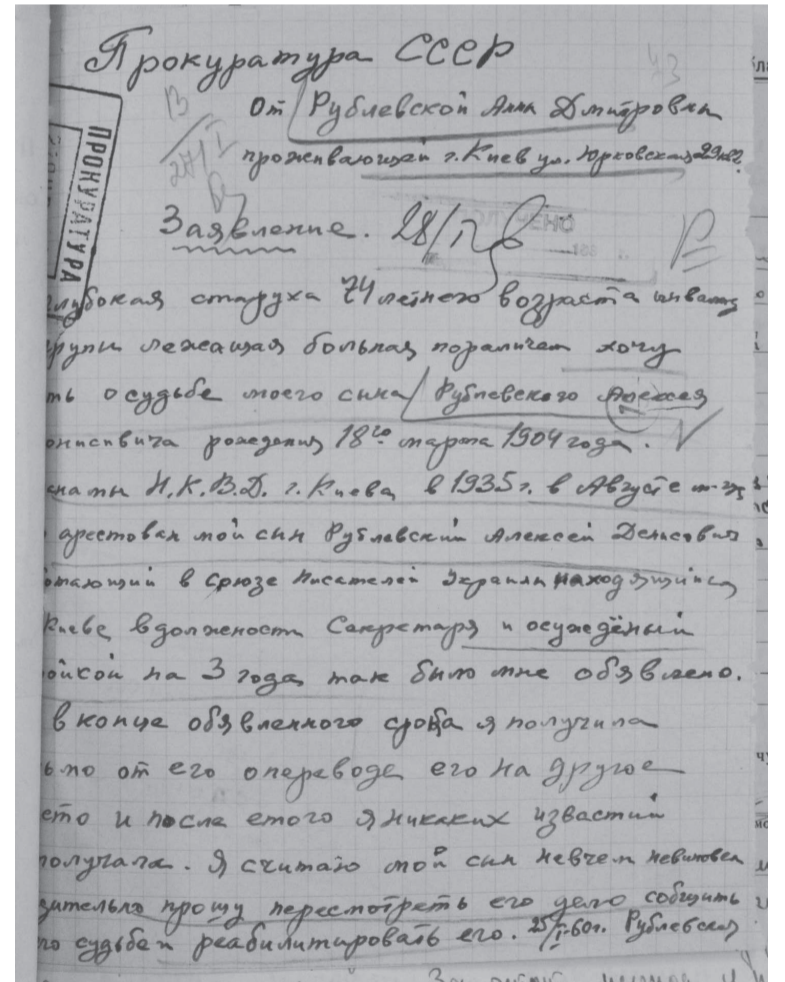 Прокуратура СССР
От Рублевской Анны Дмитровны
проживающей г. Киев ул. Юрковская 29 кв 2.
ПРОКУРАТУРА
Заявление. 28/I
глубокая старуха 74 летнего возраста инвалид
групы лежащая больная параличем хочу
ть о судьбе моего сына Рублевского Алексея
онисивича рождения 18го марта 1904 года.
нами Н.К.В.Д. г. Киева, в 1935 г. в Августе м-це
арестован мой син Рублевский Алексей Денисович
отающий в союзе писателей Украины находящийся
Киеве, вдолжности Секретаря и осуждёный
ойкой на 3 года, так было мне обявлено.
в конце обявленного срока я получила
ьмо от его опереводе его на другое
есто и после етого я никаких извастий
получала. Я считаю мой син невчем невиновен
дительно прошу пересмотреть его дело собщить
го судьбе и реабилитировать его. 25/I-60г. Рублевская